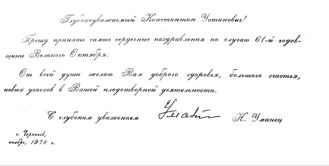 Глубокоуважаемый Константин Устинович!
Прошу принять самые сердечные поздравления по случаю 61-й годов-
щины Великого Октября.
От всей души желаю Вам доброго здоровья, большого счастья,
новых успехов в Вашей плодотворной деятельности.
С глубоким уважением
Н. Уманец
г. Чернигов,
ноябрь, 1978 г.